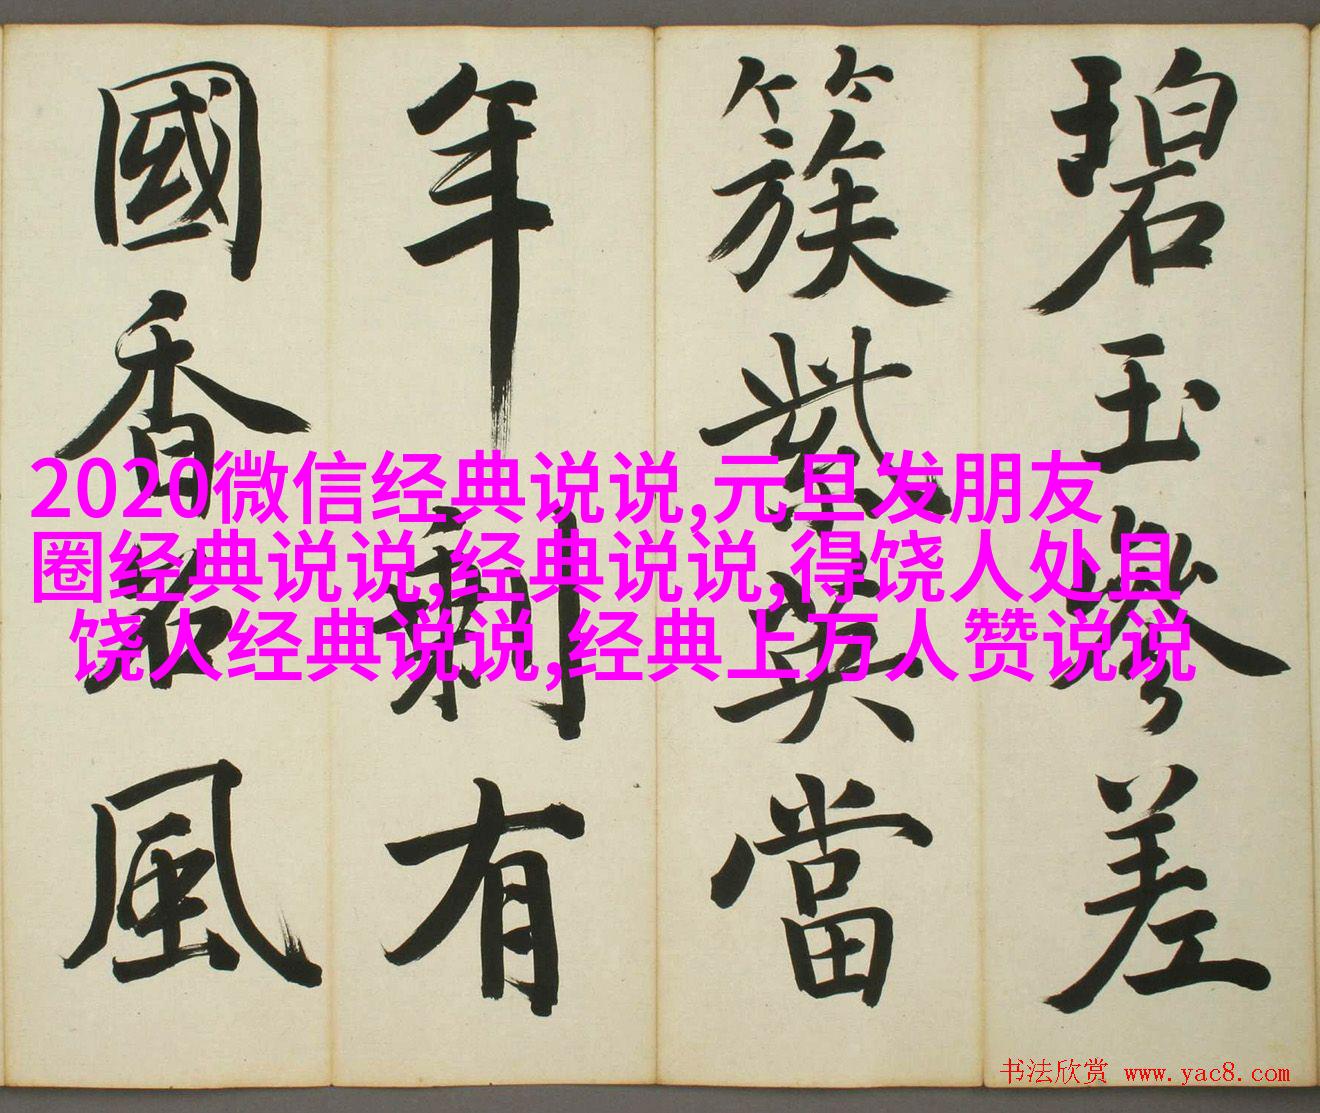 碧玉參差
簇紫英當
年剩有
國香名風
2020微信经典说说,元旦发朋友
圈经典说说,经典说说,得饶人处且
饶人经典说说,经典上万人赞说说
书法欣赏 www.yac8.com